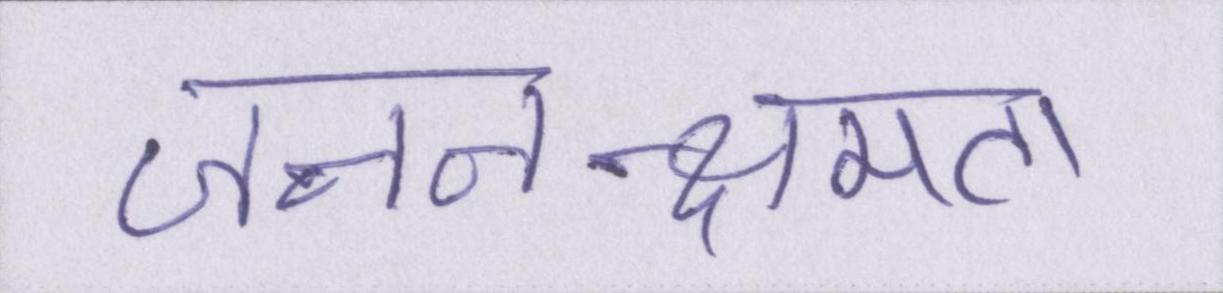 जननक्षमता